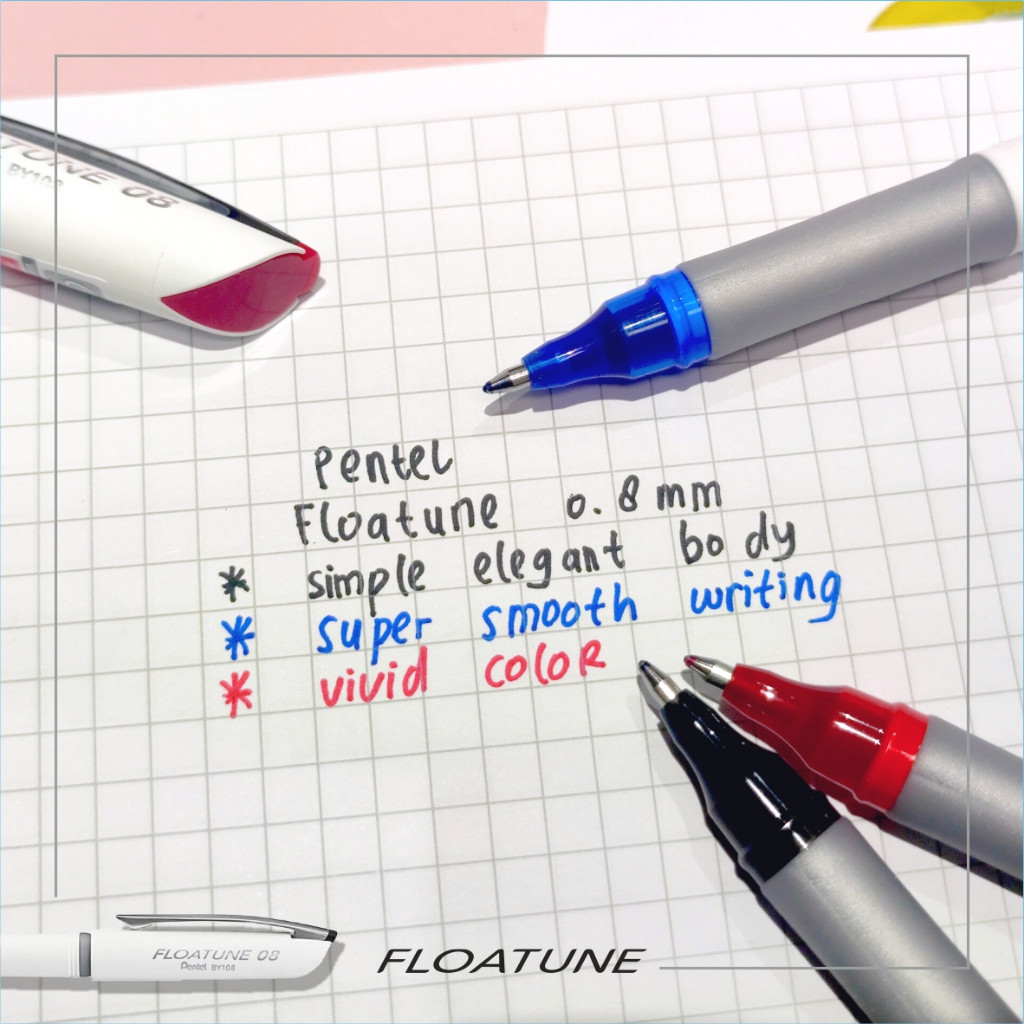 TUNE 08
BY108
Pentel
Floatune 0.8 mm
* simple elegant body
* super smooth writing
* vivid color
FLOATUNE 08
Pentel BY108
FLOATUNE